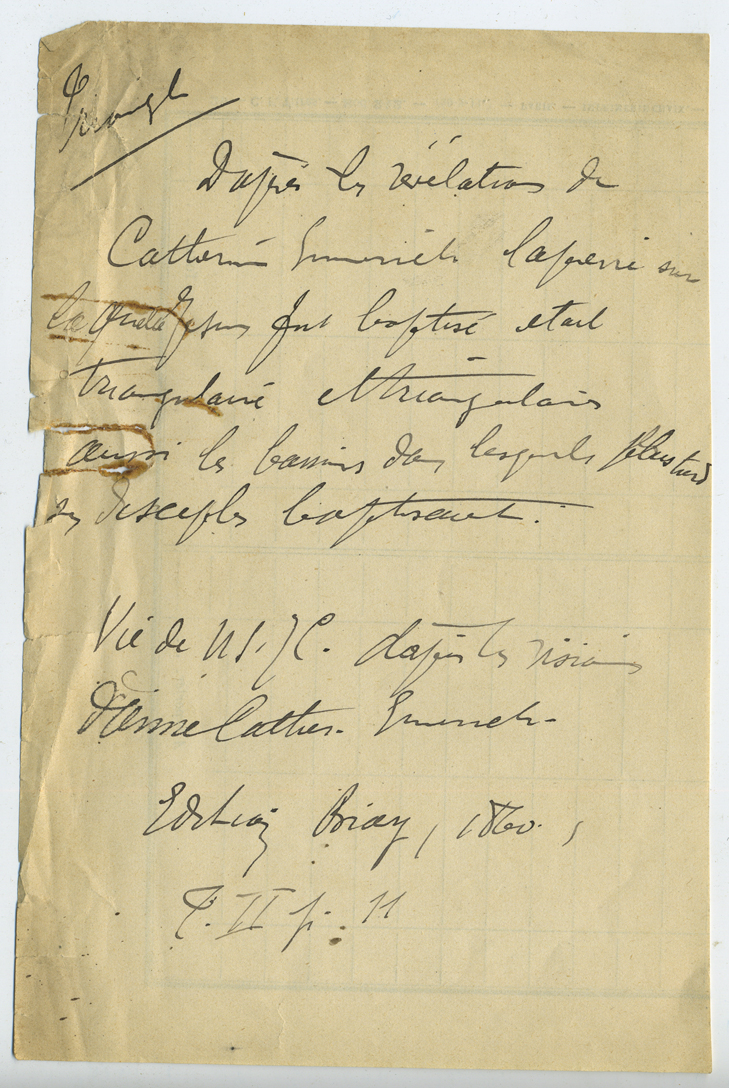 Triangle
D'après les révélations de
Catherine Emmerich la pierre sur
laquelle Jésus fut baptisé était
triangulaire et triangulaires
aussi les bassins dans lesquels plus tard
ses disciples baptisaient.
Vie de N.S.J.C. d'après les visions
d'Anne Cather. Emmerich.
Edition Bray, 1860,
T. II p. 11